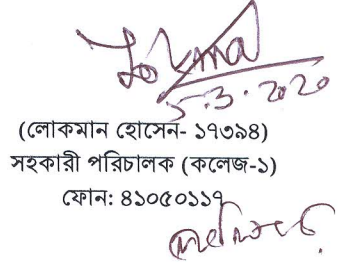 5.3.2020
(লোকমান হোসেন- ১৭৩৯৪)
সহকারী পরিচালক (কলেজ-১)
ফোন: ৪১০৫০১১৭